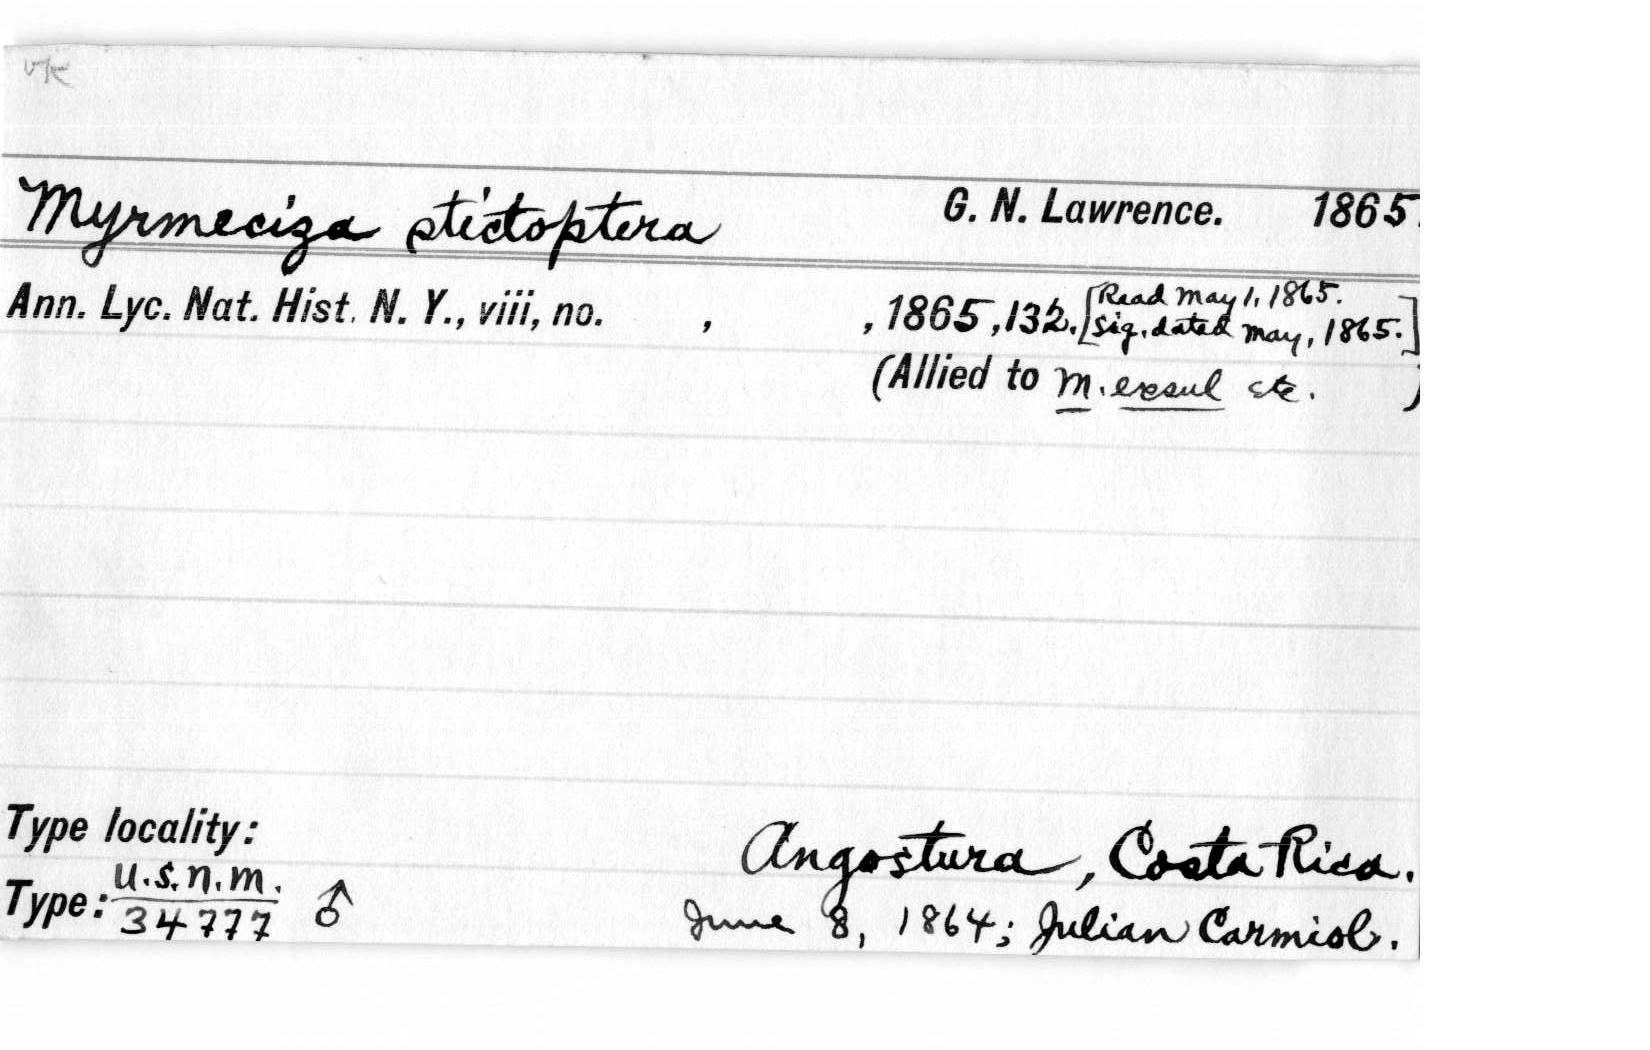 Myrmeciza stictoptera G. N. Lawrence. 1865.
Ann. Lyc. Nat. Hist. N. Y., viii, no. , , 1865, 132. [Read May 1, 1865.
Sig. dated May, 1865.]
(Allied to M. exsul etc. )
Type locality:
Angostura, Costa Rica.
Type: U.S.N.M.
34777 ♂ June 8, 1864; Julian Carmiol.